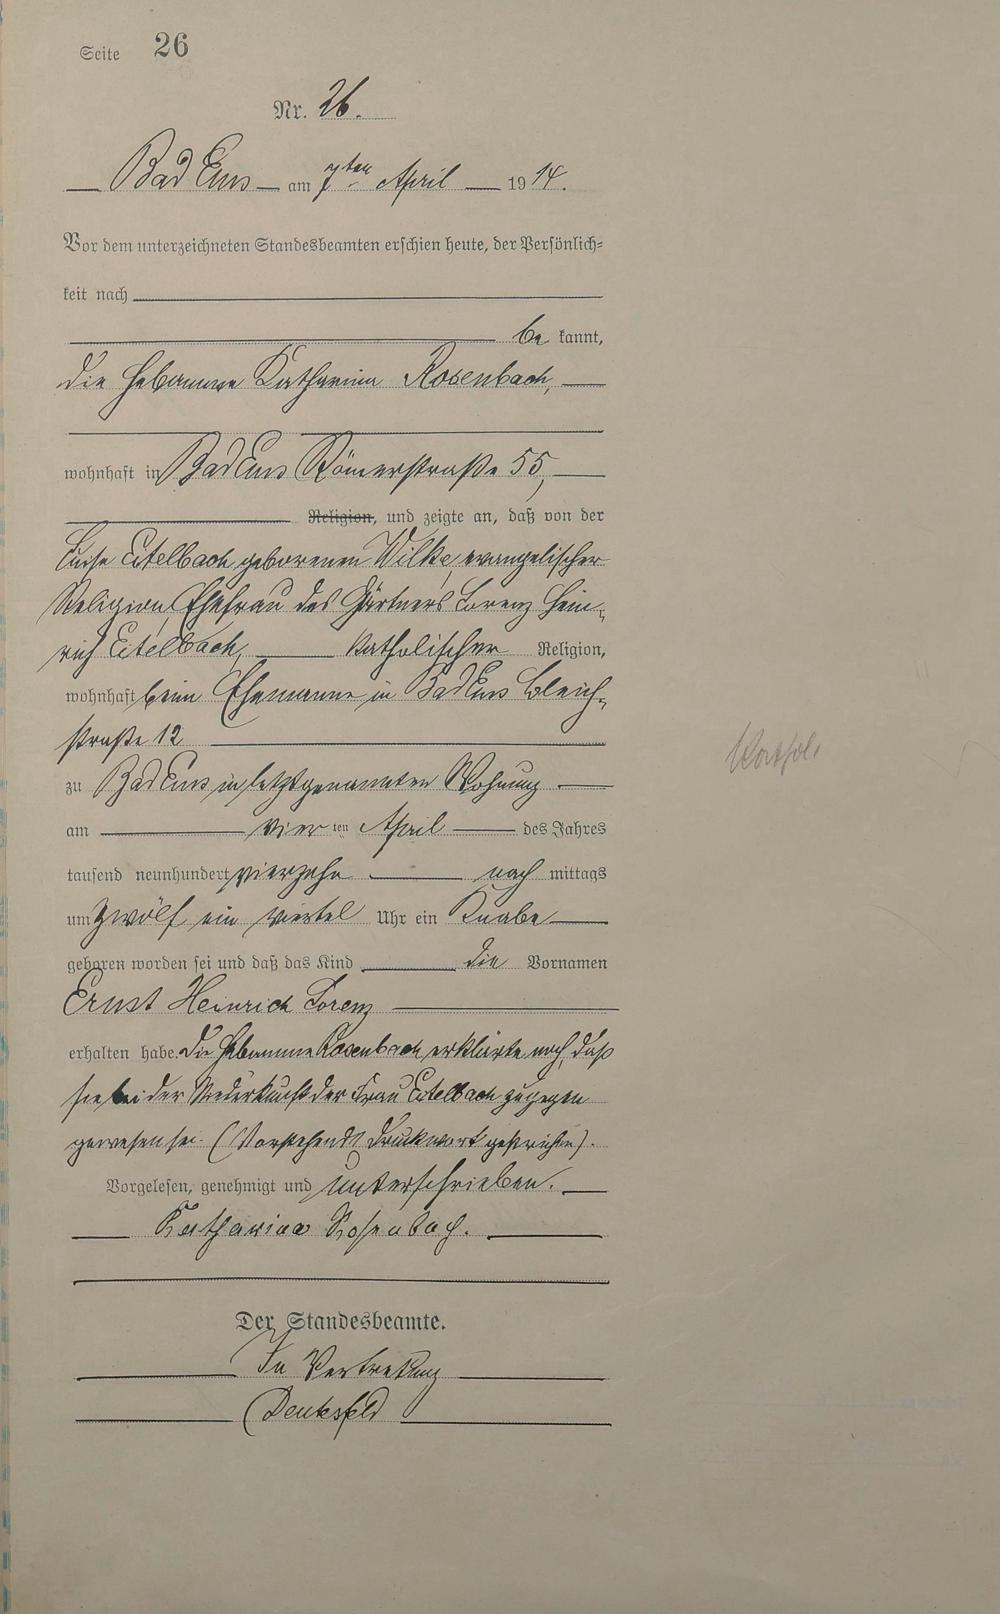 Seite 26
Nr. 26.
Bad Ems am 7ten April 1914.
Vor dem unterzeichneten Standesbeamten erschien heute, der Persönlich=
keit nach
be kannt,
die Hebamme Katharina Rosenbach,
wohnhaft in Bad Ems Römerstraße 55,
Religion, und zeigte an, daß von der
Luise Eitelbach geborenen Wilke, evangelischer
Religion, Ehefrau des Gärtners Lorenz Hein=
rich Eitelbach, katholischer Religion,
wohnhaft beim Ehemanne in Bad Ems Bleich=
straße 12
zu Bad Ems in letztgenannten Wohnung
am vier ten April des Jahres
tausend neunhundert vierzehn nach mittags
um zwölf ein viertel Uhr ein Knabe
geboren worden sei und daß das Kind die Vornamen
Ernst Heinrich Lorenz
erhalten habe. Die Hebamme Rosenbach erklärte noch, daß
sie bei der Niederkunft der Frau Eitelbach zugegen
gewesen sei. (Vorstehend 1 Druckwort gestrichen).
Vorgelesen, genehmigt und unterschrieben.
Katharina Rosenbach.
Der Standesbeamte.
In Vertretung
Kathol.